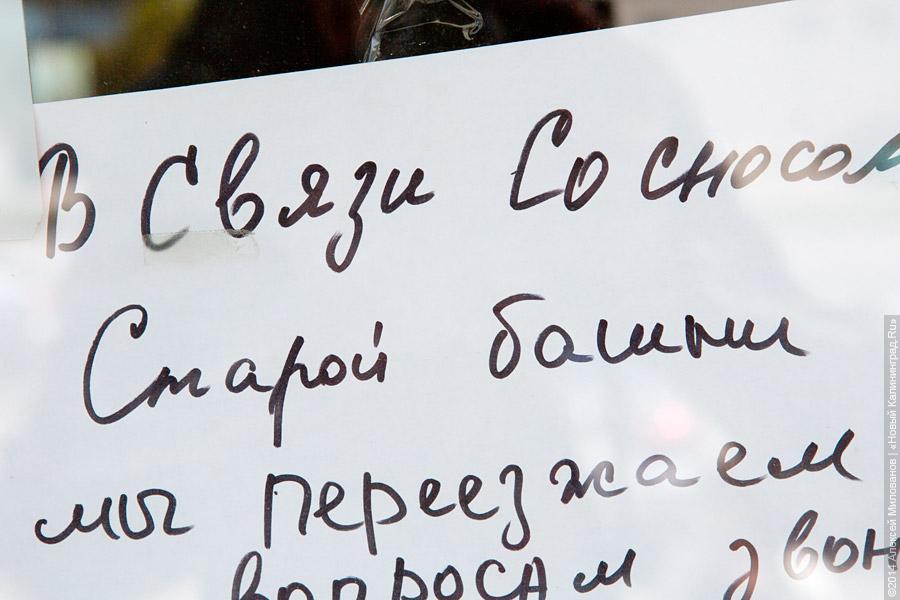 В Связи Со сносом
Старой башни
мы переезжаем
вопросам звон
©2014 Алексей Милованов | «Новый Калининград.Ru»